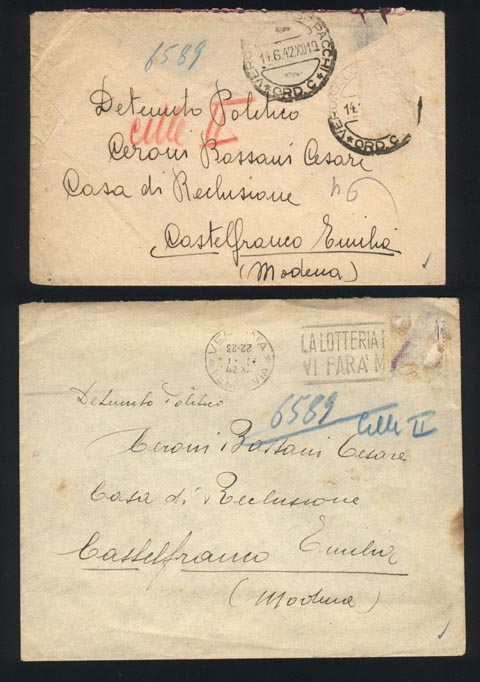 6589
PACCHI
14.6.42 XX 19
VERO
* ORD. C *
14.
VER
* ORD. C
Detenuto Politico
Celle II
Ceroni Bassani Cesari
Casa di Reclusione
46
Castelfranco Emilia
(Modena)
VE NA
22-23
VIA
LA LOTTERIA
VI FARA' M
Detenuto Politico
6589
Celle II
Ceroni Bassani Cesare
Casa di Reclusione
Castelfranco Emilia
(Modena)